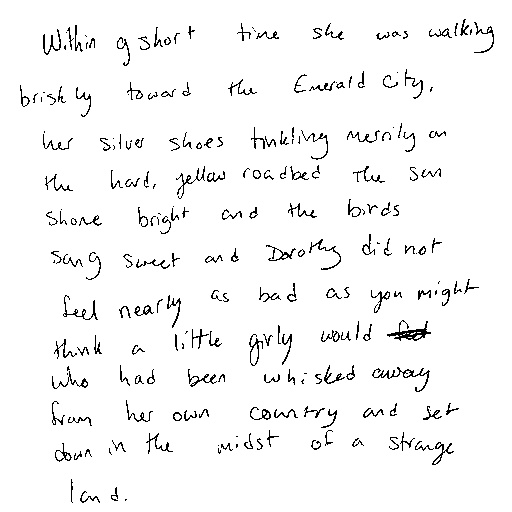 Within a short time she was walking
briskly toward the Emerald City,
her silver shoes tinkling merrily on
the hard, yellow roadbed The sun
shone bright and the birds
sang sweet and Dorothy did not
feel nearly as bad as you might
think a little girly would
who had been whisked away
from her own country and set
down in the midst of a strange
land.